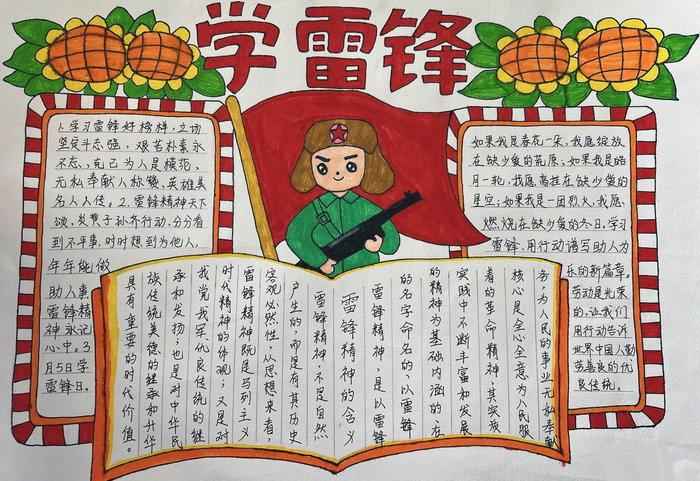 学雷锋
1.学习雷锋好榜样，立场
坚定斗志强，艰苦朴素永
不忘，克己为人是模范。
无私奉献人称赞，英雄美
名人人传。2.雷锋精神天下
颂，炎黄子孙齐行动，分分看
到不平事，时时想到为他人，
年年统做
助人事，
雷锋精
神永记
心中。3
月5日学
雷锋日。
如果我是春花一朵，我愿绽放
在缺少爱的荒原；如果我是皓
月一轮，我愿高挂在缺少爱的
星空；如果我是一团烈火，我愿
燃烧在缺少爱的冬日。学习
雷锋，用行动谱写助人为
乐的新篇章。
劳动是光荣
的，让我们
用行动告诉
世界中国人勤
劳善良的优
良传统。
雷锋精神的含义
雷锋精神，是以雷锋
的名字命名的、以雷锋
的精神为基础内涵的、在
实践中不断丰富和发展
着的革命精神，其实质
核心是全心全意为人民服
务，为人民的事业无私奉献
雷锋精神，不是自然
产生的，而是有其历史
客观必然性。从思想来看，
雷锋精神既是马列主义
时代精神的体现；又是对
我党我军优良传统的继
承和发扬；也是对中华民
族传统美德的继承和升华
具有重要的时代价值。